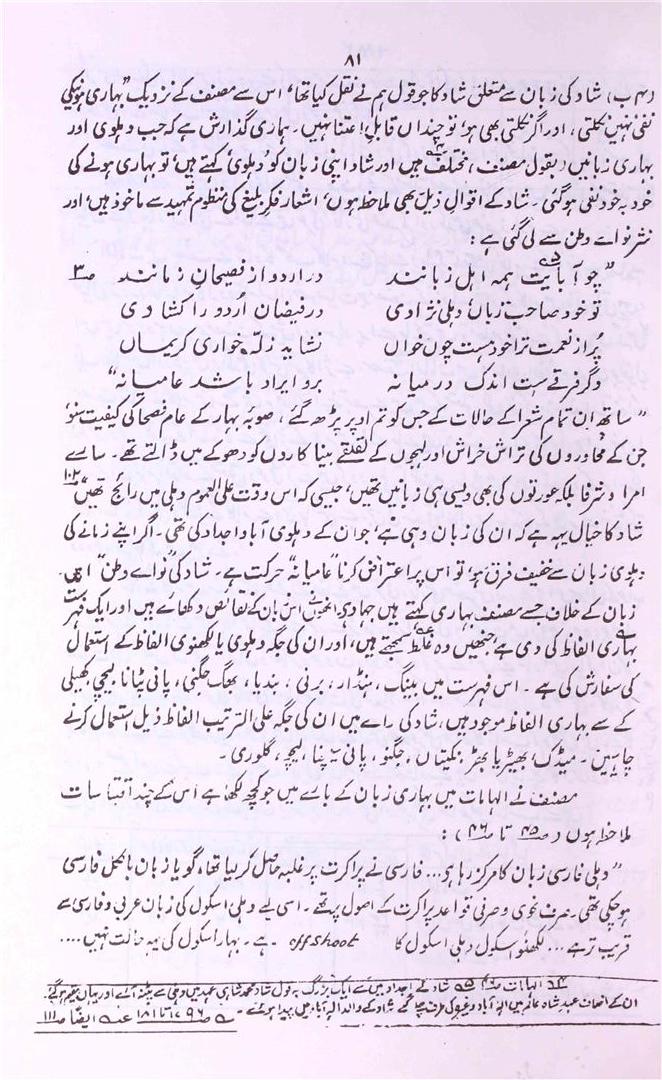 ۸۱
(۴ ب) شاد کی زبان سے متعلق شاد کا جو قول ہم نے نقل کیا تھا، اس سے مصنف کے نزدیک "بہاری ہونیکی
نفی نہیں نکلتی، اور اگر نکلتی بھی ہو، تو چنداں قابلِ اعتنا نہیں۔ ہماری گذارش ہے کہ جب دہلوی اور
بہاری زبانیں (بقول مصنف) مختلف ہیں اور شاد اپنی زبان کو 'دہلوی' کہتے ہیں، تو بہاری ہونے کی
خود بہ خود نفی ہو گئی۔ شاد کے اقوال ذیل بھی ملاحظہ ہوں، اشعار فکر بلیغ کی منظوم تمہید سے ماخوذ ہیں، اور
نثر نواے وطن سے لی گئی ہے :
"چو آبایت ہمہ اہل زبانند در اردو از فصیحان زمانند ص۳
تو خود صاحب زبان دہلی نژادی در فیضان اُردو را کشادی
پر از نعمت ترا خود ہست چوں خواں نشاید زلّہ خواری کریماں
وگر فرقے ست اندک درمیانہ برو ایراد باشد عامیانہ"
"ساتھ ان تمام شعرا کے حالات کے جس کو تم اوپر پڑھ گئے، صوبہ بہار کے عام فصحا کی کیفیت سنو
جن کے محاوروں کی تراش خراش اور لہجوں کے لقلقے بینا کاروں کو دھوکے میں ڈالتے تھے۔ سارے
امرا و شرفا بلکہ عورتوں کی بھی ویسی ہی زبانیں تھیں، جیسی کہ اس وقت علی العموم دہلی میں رائج تھیں" ص۱۰۲
شاد کا خیال یہ ہے کہ ان کی زبان وہی ہے، جو ان کے دہلوی آبا و اجداد کی تھی۔ اگر اپنے زمانے کی
دہلوی زبان سے خفیف فرق ہو، تو اس پر اعتراض کرنا "عامیانہ" حرکت ہے۔ شاد کی "نواے وطن" اسی
زبان کے خلاف جسے مصنف بہاری کہتے ہیں جہاد ہے، انھوں نے اس زبان کے نقائص دکھائے ہیں اور ایک فہرست
بہاری الفاظ کی دی ہے جنھیں وہ غلط سمجھتے ہیں، اور ان کی جگہ دہلوی یا لکھنوی الفاظ کے استعمال
کی سفارش کی ہے۔ اس فہرست میں بینگ، ہنڈار، برنی، بندیا، بھگ جگنی، پانی ٹپانا، لیچی، کھیلی
کے سے بہاری الفاظ موجود ہیں، شاد کی راے میں ان کی جگہ علی الترتیب الفاظ ذیل استعمال کرنے
چاہییں۔ مینڈک، بھیڑیا، بھڑ، ٹکتیاں، جگنو، پانی پینا، لیچو، گلوری۔
مصنف نے الہامات میں بہاری زبان کے بارے میں جو کچھ لکھا ہے اس کے چند اقتباسات
ملاحظہ ہوں (ص۴۵ تا ص۴۶) :
"دہلی فارسی زبان کا مرکز رہا ہے... فارسی نے پراکرت پر غلبہ حاصل کر لیا تھا، گویا زبان بالکل فارسی
ہو چکی تھی۔ صرف نحوی و صرفی قواعد پراکرت کے اصول پر تھے۔ اسی لیے دہلی اسکول کی زبان عربی و فارسی سے
قریب تر ہے... لکھنؤ اسکول دہلی اسکول کا offshoot ہے۔ بہار اسکول کی یہ حالت نہیں....
الہامات ص۴۶ شاد کے اجداد میں سے ایک بزرگ بہ قول شاد محمد شاہی عہد میں دہلی سے پٹنہ آئے اور یہاں مقیم ہو گئے۔
ان کے اخلاف عہد شاہ عالم میں الہ آباد وغیرہ کی طرف چلے گئے شاد کے والد الہ آباد میں پیدا ہوئے۔ ص۹۶ ایضاً ص۱۱۱